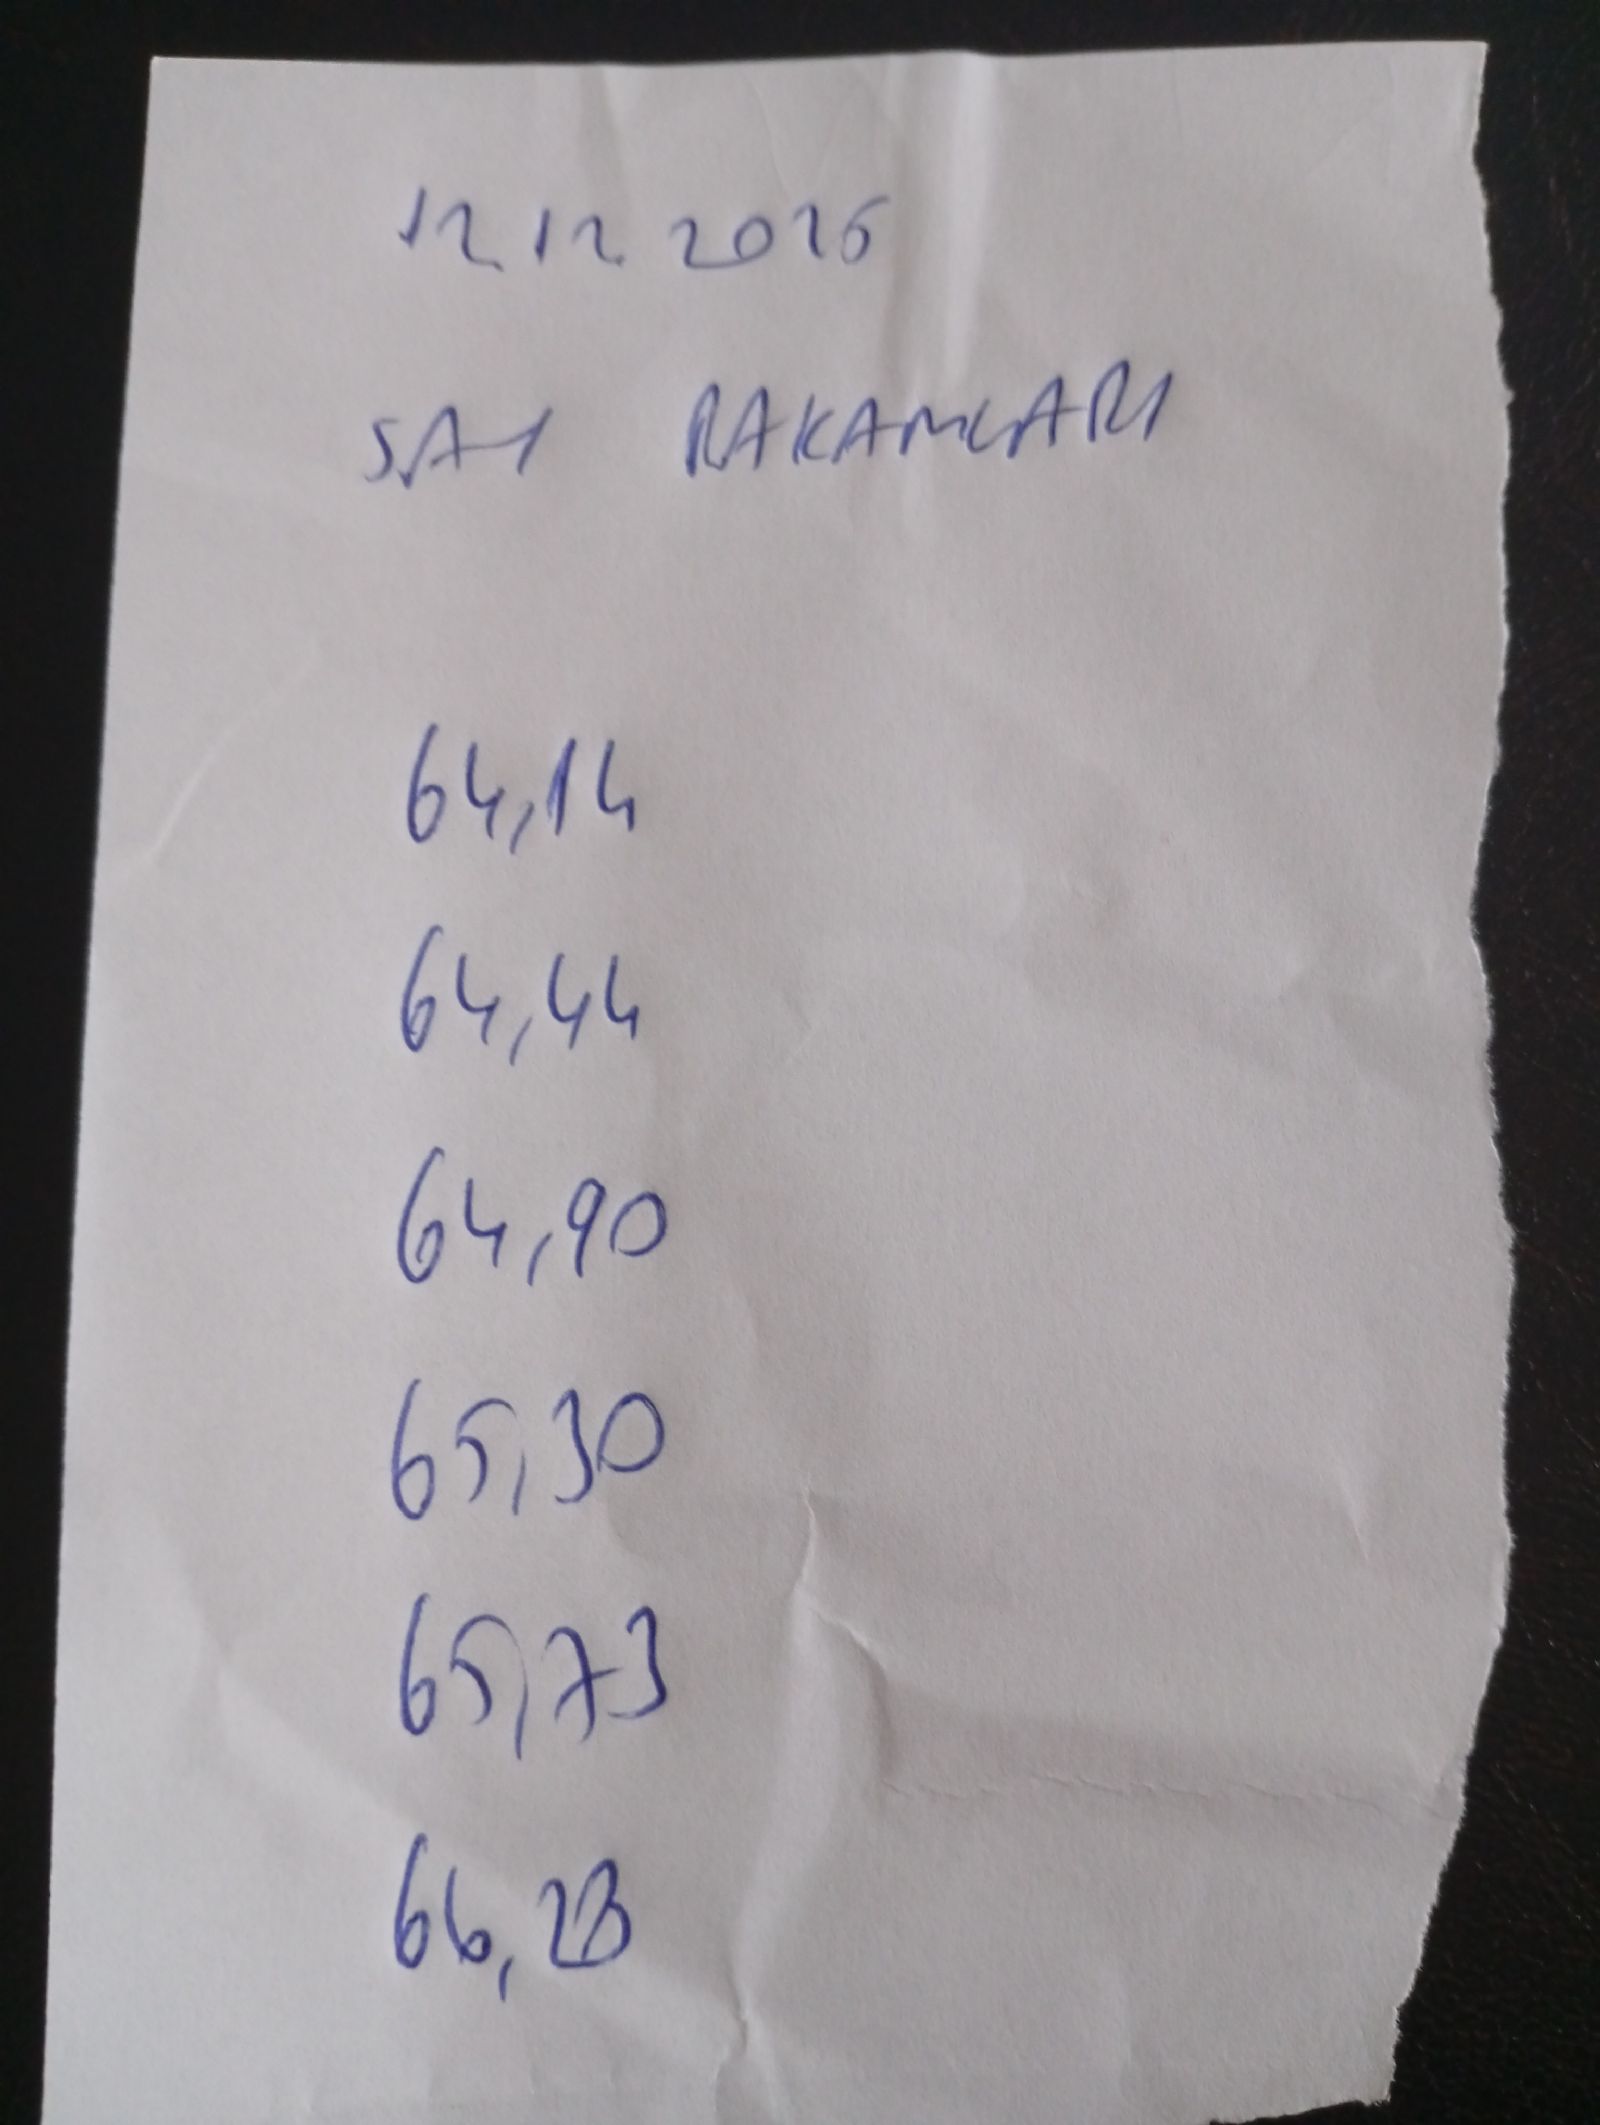 12 12 2025
SA1 RAKAMLARI
64,14
64,44
64,90
65,30
65,73
66,28